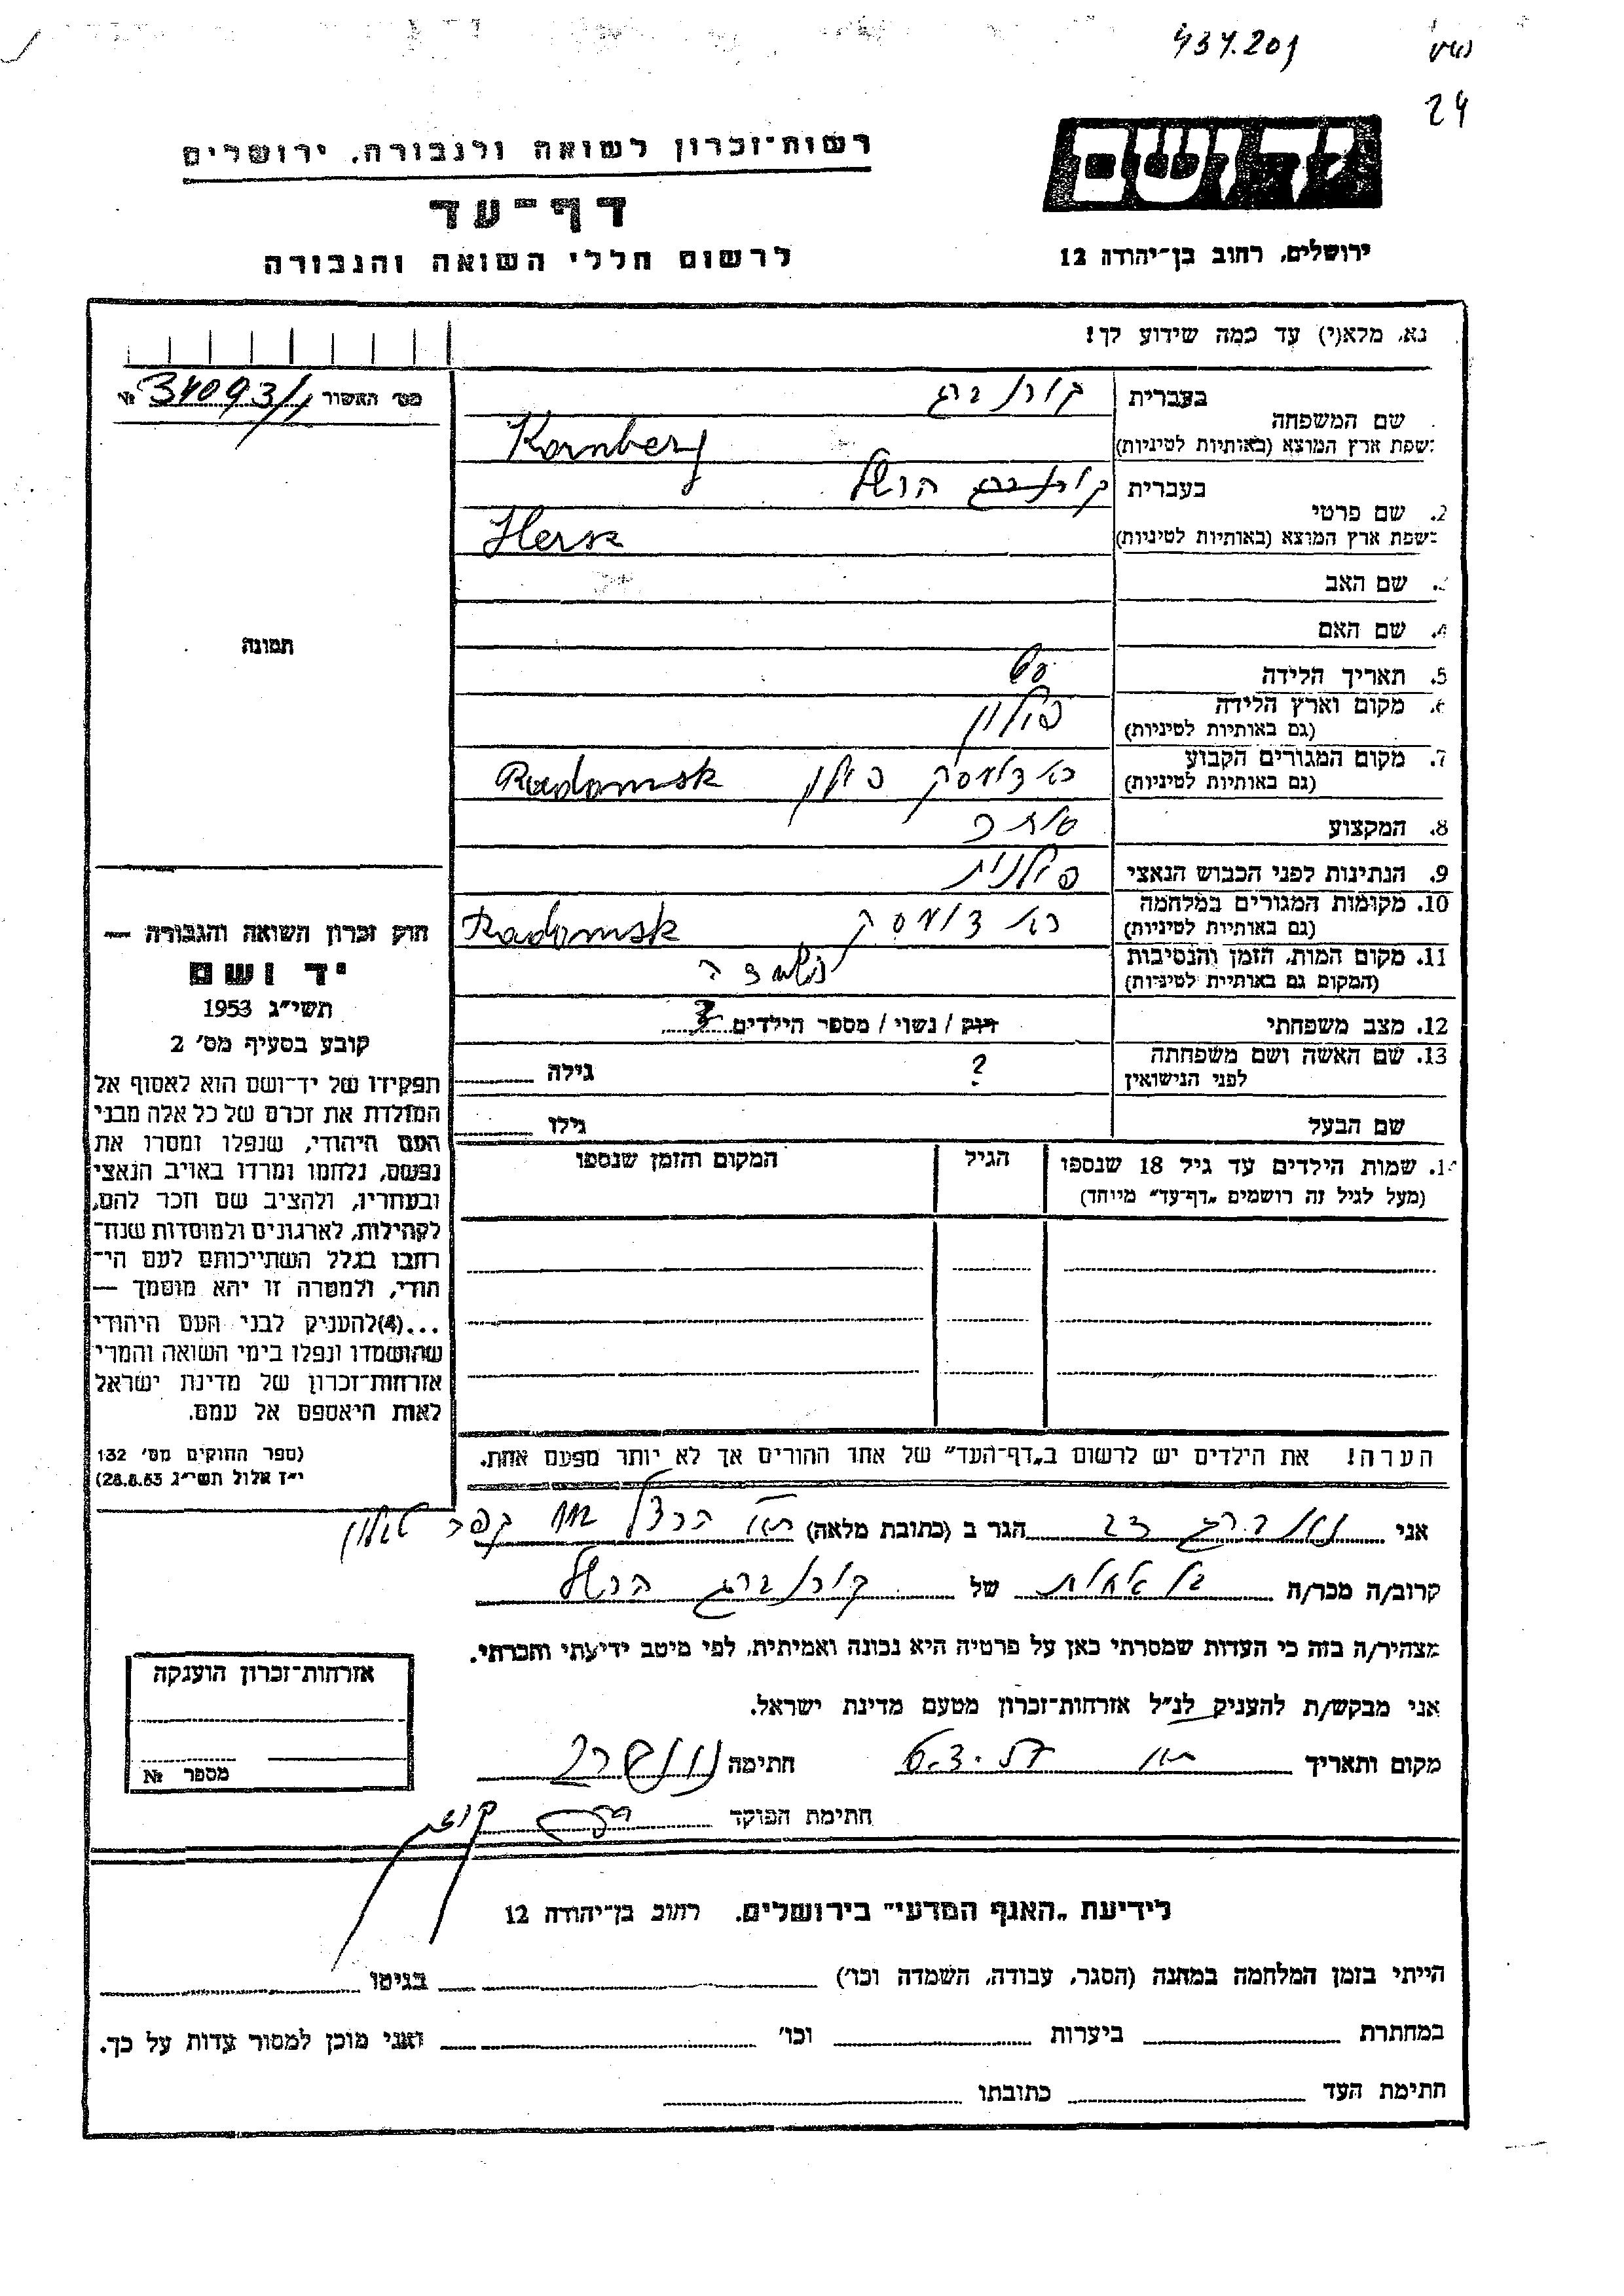 434.201
24
יד ושם
רשות־זכרון לשואה ולגבורה, ירושלים
דף־עד
לרשום חללי השואה והגבורה
ירושלים, רחוב בן־יהודה 12
נא, מלא(י) עד כמה שידוע לך!
מס' האשור 34093/ №
תמונה
שם המשפחה
בעברית קורנברג
בשפת ארץ המוצא (באותיות לטיניות) Kornberg
2. שם פרטי
בעברית קורנברג הרשל
בשפת ארץ המוצא (באותיות לטיניות) Hersk
שם האב
4. שם האם
5. תאריך הלידה
6. מקום וארץ הלידה פולין
(גם באותיות לטיניות)
7. מקום המגורים הקבוע ראדומסק פולין Radomsk
(גם באותיות לטיניות)
8. המקצוע סוחר
9. הנתינות לפני הכבוש הנאצי פולנית
10. מקומות המגורים במלחמה ראדומסק Radomsk
(גם באותיות לטיניות)
11. מקום המות, הזמן והנסיבות
(המקום גם באותיות לטיניות)
12. מצב משפחתי רווק / נשוי / מספר הילדים 3
13. שם האשה ושם משפחתה ? גילה
לפני הנישואין
שם הבעל גילו
שמות הילדים עד גיל 18 שנספו הגיל המקום והזמן שנספו
(מעל לגיל זה רושמים „דף־עד" מיוחד)
חוק זכרון השואה והגבורה —
יד ושם
תשי"ג 1953
קובע בסעיף מס' 2
תפקידו של יד־ושם הוא לאסוף אל
המולדת את זכרם של כל אלה מבני
העם היהודי, שנפלו ומסרו את
נפשם, נלחמו ומרדו באויב הנאצי
ובעוזריו, ולהציב שם וזכר להם,
לקהילות, לארגונים ולמוסדות שנח־
רבו בגלל השתייכותם לעם הי־
הודי, ולמטרה זו יהא מוסמך —
...(4)להעניק לבני העם היהודי
שהושמדו ונפלו בימי השואה והמרי
אזרחות־זכרון של מדינת ישראל
לאות היאספם אל עמם.
(ספר החוקים מס' 132
י"ז אלול תשי"ג 28.8.53)
הערה! את הילדים יש לרשום ב„דף־העד" של אחד ההורים אך לא יותר מפעם אחת.
אני הגר ב (כתובת מלאה)
קרוב/ה מכר/ה של קורנברג הרשל
מצהיר/ה בזה כי העדות שמסרתי כאן על פרטיה היא נכונה ואמיתית, לפי מיטב ידיעתי והכרתי.
אני מבקש/ת להעניק לנ"ל אזרחות־זכרון מטעם מדינת ישראל.
מקום ותאריך חתימה
חתימת הפוקד
אזרחות־זכרון הוענקה
מספר №
לידיעת „האגף המדעי" בירושלים. רחוב בן־יהודה 12
הייתי בזמן המלחמה במחנה (הסגר, עבודה, השמדה וכו') בגיטו
במחתרת ביערות וכו' ואני מוכן למסור עדות על כך.
חתימת העד כתובתו